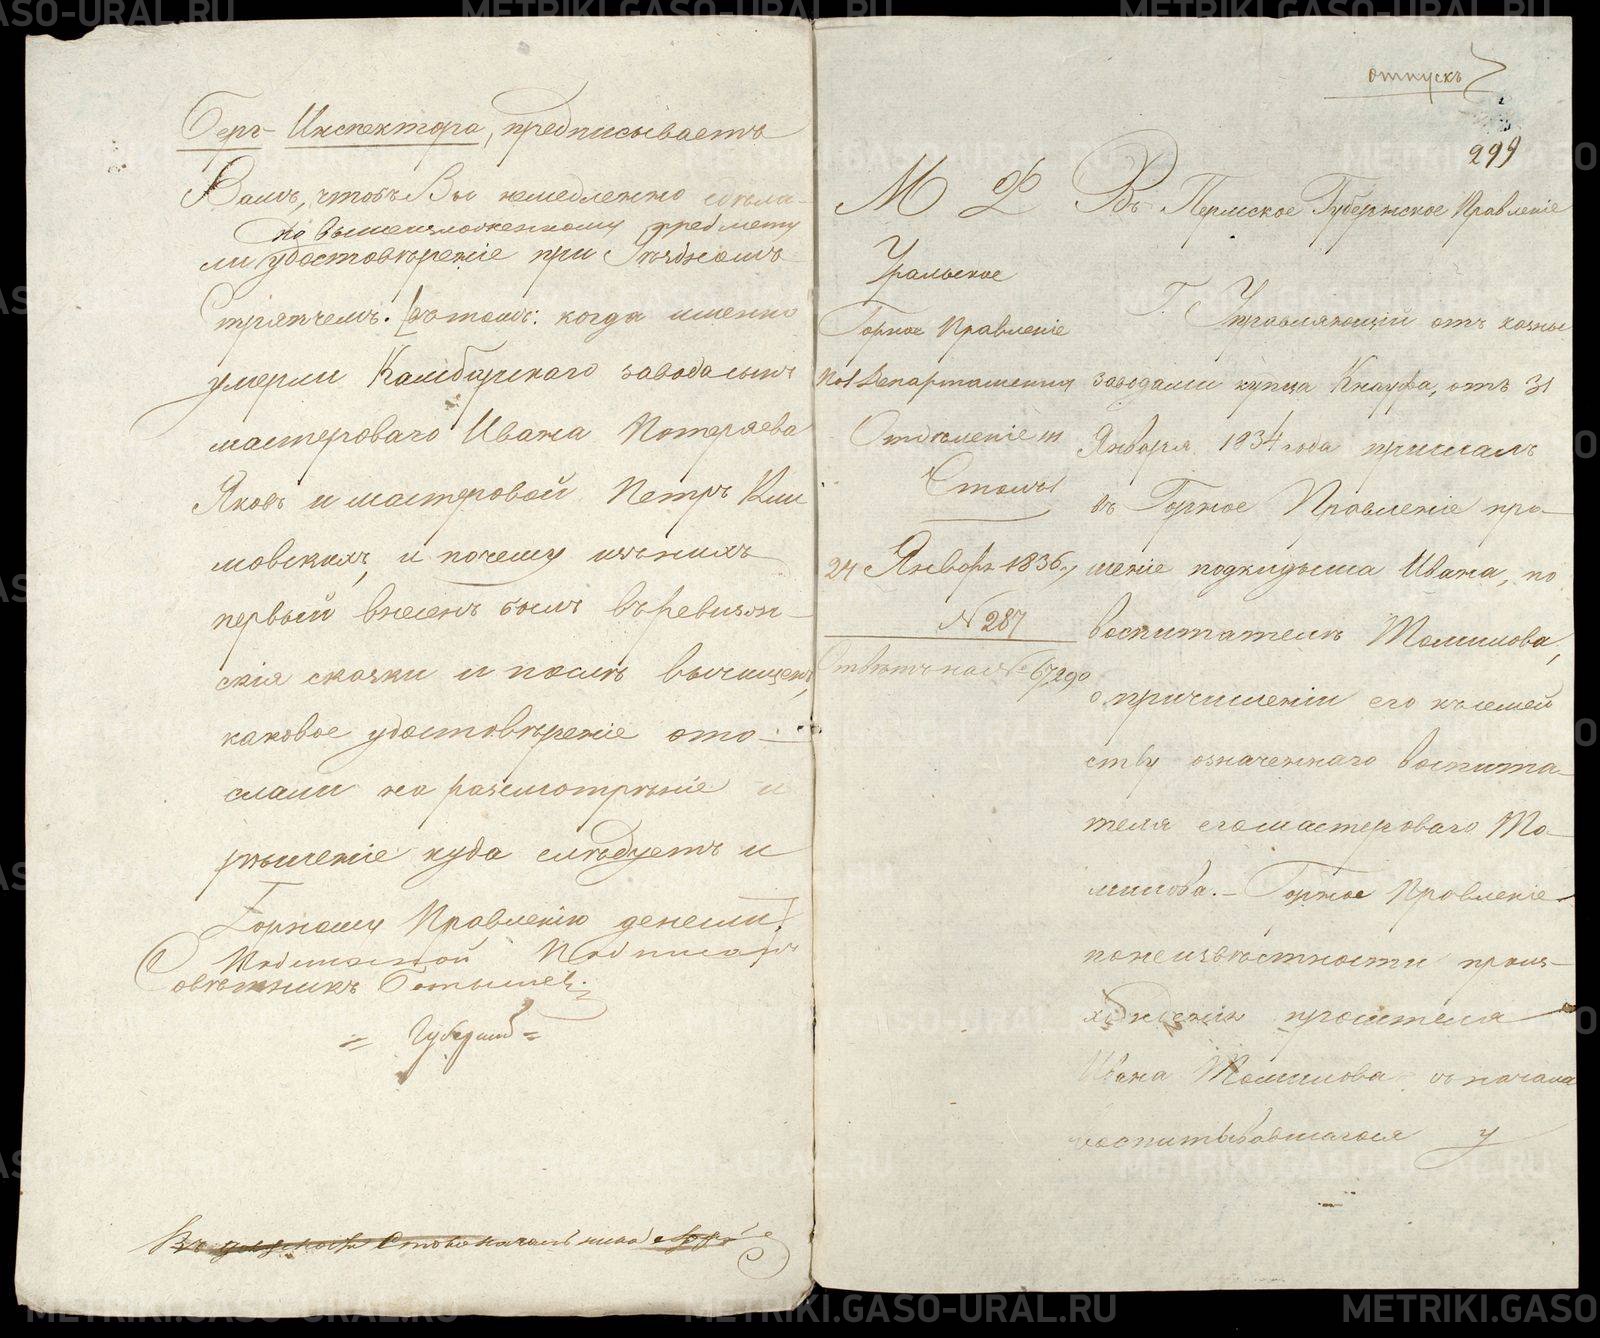 Бергъ-Инспектора, предписываетъ
Вамъ, чтобъ Вы немедленно сдѣла-
по вышеизложенному предмету
ли удостовѣреніе при Уѣздномъ
Стряпчемъ. въ томъ: когда именно
умерли Камбарскаго завода сынъ
мастероваго Ивана Потеряева
Яковъ и мастеровой Петръ Кли
мовскихъ, и почему изъ нихъ
первый внесенъ былъ въ ревизи-
скія сказки и послѣ вычищенъ,
каковое удостовѣреніе ото-
слали на разсмотрѣніе и
рѣшеніе куда слѣдуетъ и
Горному Правленію донесли.
Подлинной Подписалъ
Совѣтникъ
отпускъ
299
М Ф
Уральское
Горное Правленіе
Департамента
Отдѣленіе III
Столъ 1
24 Января 1836,
№ 287
Отвѣтъ на №
Въ Пермское Губернское Правленіе
Г. Управляющій отъ казны
заводами купца Кнауфа, отъ 31
Января 1834 года прислалъ
въ Горное Правленіе про-
шеніе подкидыша Ивана, по
воспитателѣ Томилова,
о причисленіи его къ семей
ству означеннаго воспита-
теля его мастероваго То-
милова.- Горное Правленіе
по неизвѣстности проис-
хожденія просителя
Ивана Томилова въ начала
воспитывавшагося у
METRIKI.GASO-URAL.RU